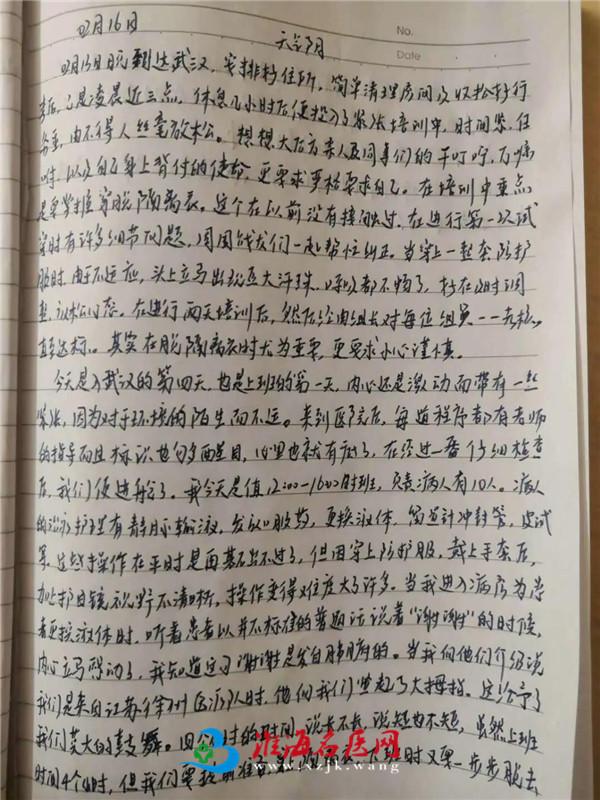 No.
Date
02月16日 天气阴
02月13日晚到达武汉,安排好住所,简单清理房间及收拾好行
李后,已是凌晨近三点。休息几小时后便投入了紧张培训中,时间紧,任
务重,由不得人丝毫放松。想想大后方亲人及同事们的千叮咛,万嘱
咐,以及自己身上背付的使命,更要求严格要求自己。在培训中重点
是要掌握穿脱隔离衣。这个在以前没有接触过,在进行第一次试
穿时有许多细节问题,周围战友们一起帮忙纠正。当穿上一整套防护
服时,由于不适应,头上立马出现豆大汗珠,呼吸都不畅了,好在及时调
整,放松心态。在进行两天培训后,然后经由组长对每位组员一一考核,
直至达标。其实在脱隔离衣时尤为重要,更要求小心谨慎。
今天是入武汉的第四天,也是上班的第一天,内心还是激动而带有一丝
紧张,因为对于环境的陌生而不适。来到医院后,每道程序都有老师
的指导而且标识也够多而醒目,心里也就有底了,在经过一番仔细检查
后,我们便进舱了。我今天是值12:00-16:00时班,负责病人有10人。病人
的治疗护理有静脉输液,发放口服药,更换液体,留置针冲封管,皮试
等,这些操作在平时是再基础不过了,但因穿上防护服,戴上手套后,
加上护目镜视野不清晰,操作变得难度大了许多。当我进入病房为患
者更换液体时,听着患者以并不标准的普通话说着“谢谢”的时候,
内心立马感动了,我知道这句谢谢是发自肺腑的。当我向他们介绍说
我们是来自江苏徐州医疗队时,他向我们竖起了大拇指。这给予了
我们莫大的鼓舞。四个小时的时间,说长不长,说短也不短,虽然上班
时间4个小时,但我们要提前准备,穿上隔离衣,下班时又要一步步脱去,
淮海名医网
www.xzjk.wang